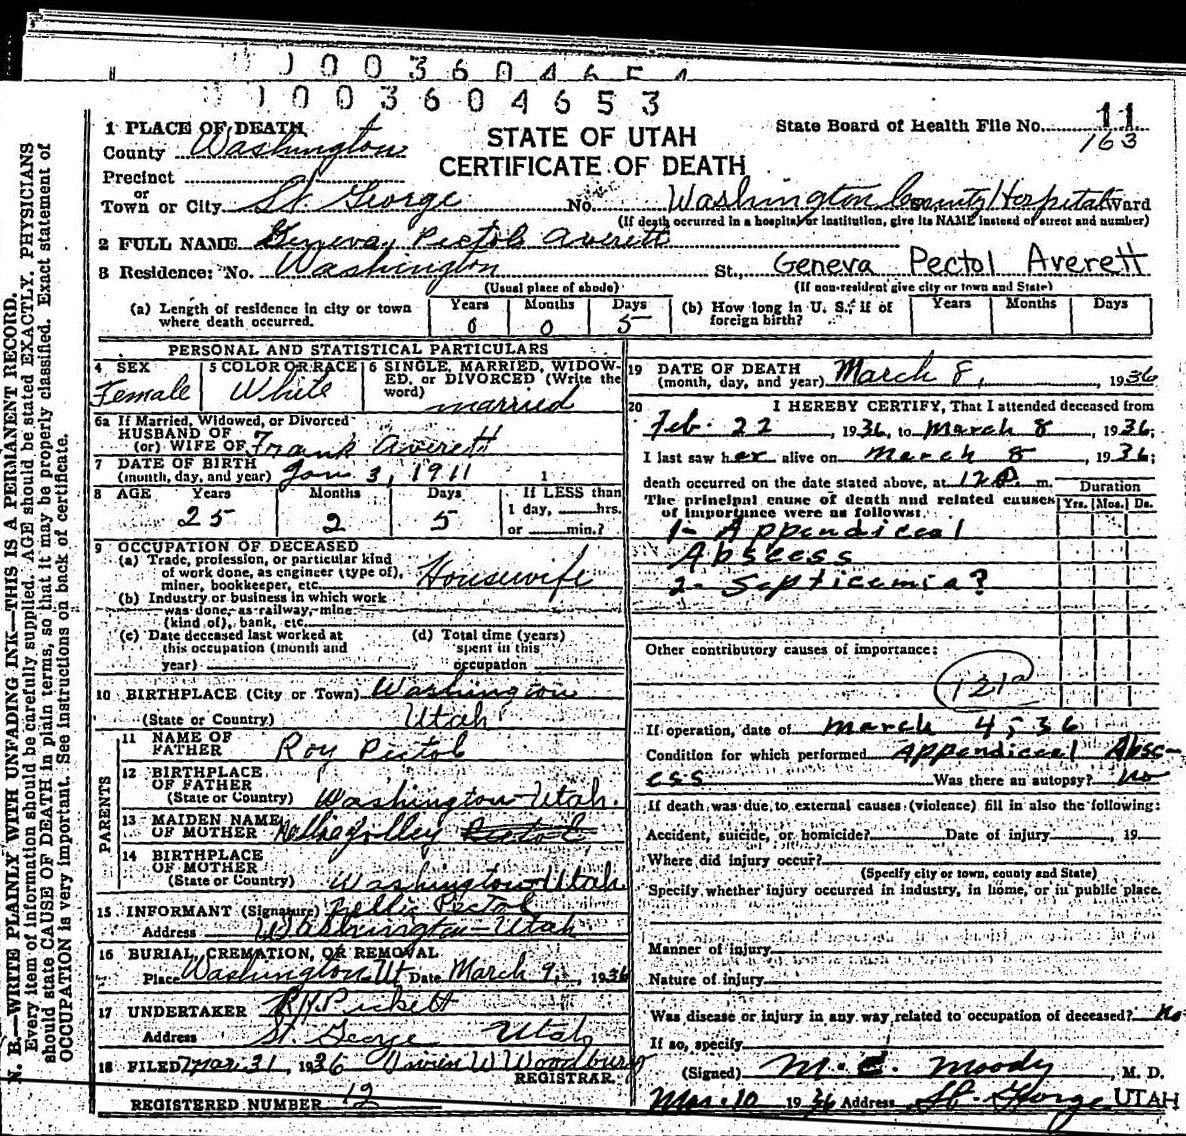 J 0 0 3 6 0 4 6 5 4
J 0 0 3 6 0 4 6 5 3
1 PLACE OF DEATH
County Washington
Precinct
or
Town or City St George No. Washington County Hospital Ward
(If death occurred in a hospital or institution, give its NAME instead of street and number)
STATE OF UTAH
CERTIFICATE OF DEATH
State Board of Health File No. 11
163
2 FULL NAME Geneva Pectol Averett
3 Residence: No. Washington St., Geneva Pectol Averett
(Usual place of abode) (If non-resident give city or town and State)
(a) Length of residence in city or town where death occurred. Years 0 Months 0 Days 5
(b) How long in U. S., if of foreign birth? Years Months Days
PERSONAL AND STATISTICAL PARTICULARS
4 SEX Female
5 COLOR OR RACE White
6 SINGLE, MARRIED, WIDOW-
ED, or DIVORCED (Write the
word) married
6a If Married, Widowed, or Divorced
HUSBAND OF
(or) WIFE OF Frank Averett
7 DATE OF BIRTH
(month, day, and year) Jan 3, 1911
8 AGE Years 25 Months 2 Days 5
If LESS than
1 day, hrs.
or min.?
9 OCCUPATION OF DECEASED
(a) Trade, profession, or particular kind
of work done, as engineer (type of),
miner, bookkeeper, etc. Housewife
(b) Industry or business in which work
was done, as railway, mine
(kind of), bank, etc.
(c) Date deceased last worked at
this occupation (month and
year)
(d) Total time (years)
spent in this
occupation
10 BIRTHPLACE (City or Town) Washington
(State or Country) Utah
PARENTS
11 NAME OF
FATHER Roy Pectol
12 BIRTHPLACE
OF FATHER
(State or Country) Washington-Utah.
13 MAIDEN NAME
OF MOTHER Nellie Jolley Pectol
14 BIRTHPLACE
OF MOTHER
(State or Country) Washington-Utah
15 INFORMANT (Signature) Nellie Pectol
Address Washington-Utah
16 BURIAL, CREMATION, OR REMOVAL
Place Washington Ut Date March 9, 1936
17 UNDERTAKER Pickett
Address St George Utah
18 FILED Mar 31, 1936 Irwin W Woodbury
REGISTRAR.
REGISTERED NUMBER 12
19 DATE OF DEATH
(month, day, and year) March 8, 1936
20 I HEREBY CERTIFY, That I attended deceased from
Feb. 22, 1936, to March 8, 1936;
I last saw her alive on March 8, 1936;
death occurred on the date stated above, at m. Duration
The principal cause of death and related causes
of importance were as follows: Yrs. Mos. Ds.
1- Appendiceal
Abscess
2- Septicemia?
Other contributory causes of importance:
121a
If operation, date of March 4, 36
Condition for which performed Appendiceal Absc-
ess Was there an autopsy? No
If death was due to external causes (violence) fill in also the following:
Accident, suicide, or homicide? Date of injury , 19
Where did injury occur?
(Specify city or town, county and State)
Specify whether injury occurred in industry, in home, or in public place.
Manner of injury
Nature of injury
Was disease or injury in any way related to occupation of deceased? no
If so, specify
(Signed) M. C. Moody, M. D.
Mar. 10 1936 Address St. George, UTAH
N. B.—WRITE PLAINLY WITH UNFADING INK—THIS IS A PERMANENT RECORD.
Every item of information should be carefully supplied. AGE should be stated EXACTLY. PHYSICIANS
should state CAUSE OF DEATH in plain terms, so that it may be properly classified. Exact statement of
OCCUPATION is very important. See instructions on back of certificate.